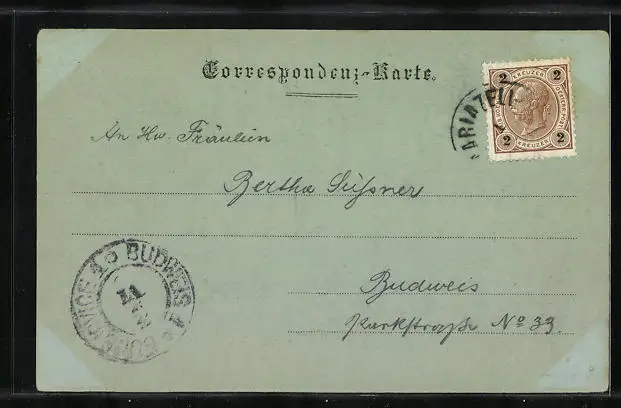 Correspondenz-Karte.
2 KREUZER 2
2 KREUZER 2
ARIAZELL
An Hw. Fräulein
Bertha Süßner
BUDWEIS
Budweis
Parkstraße No 33